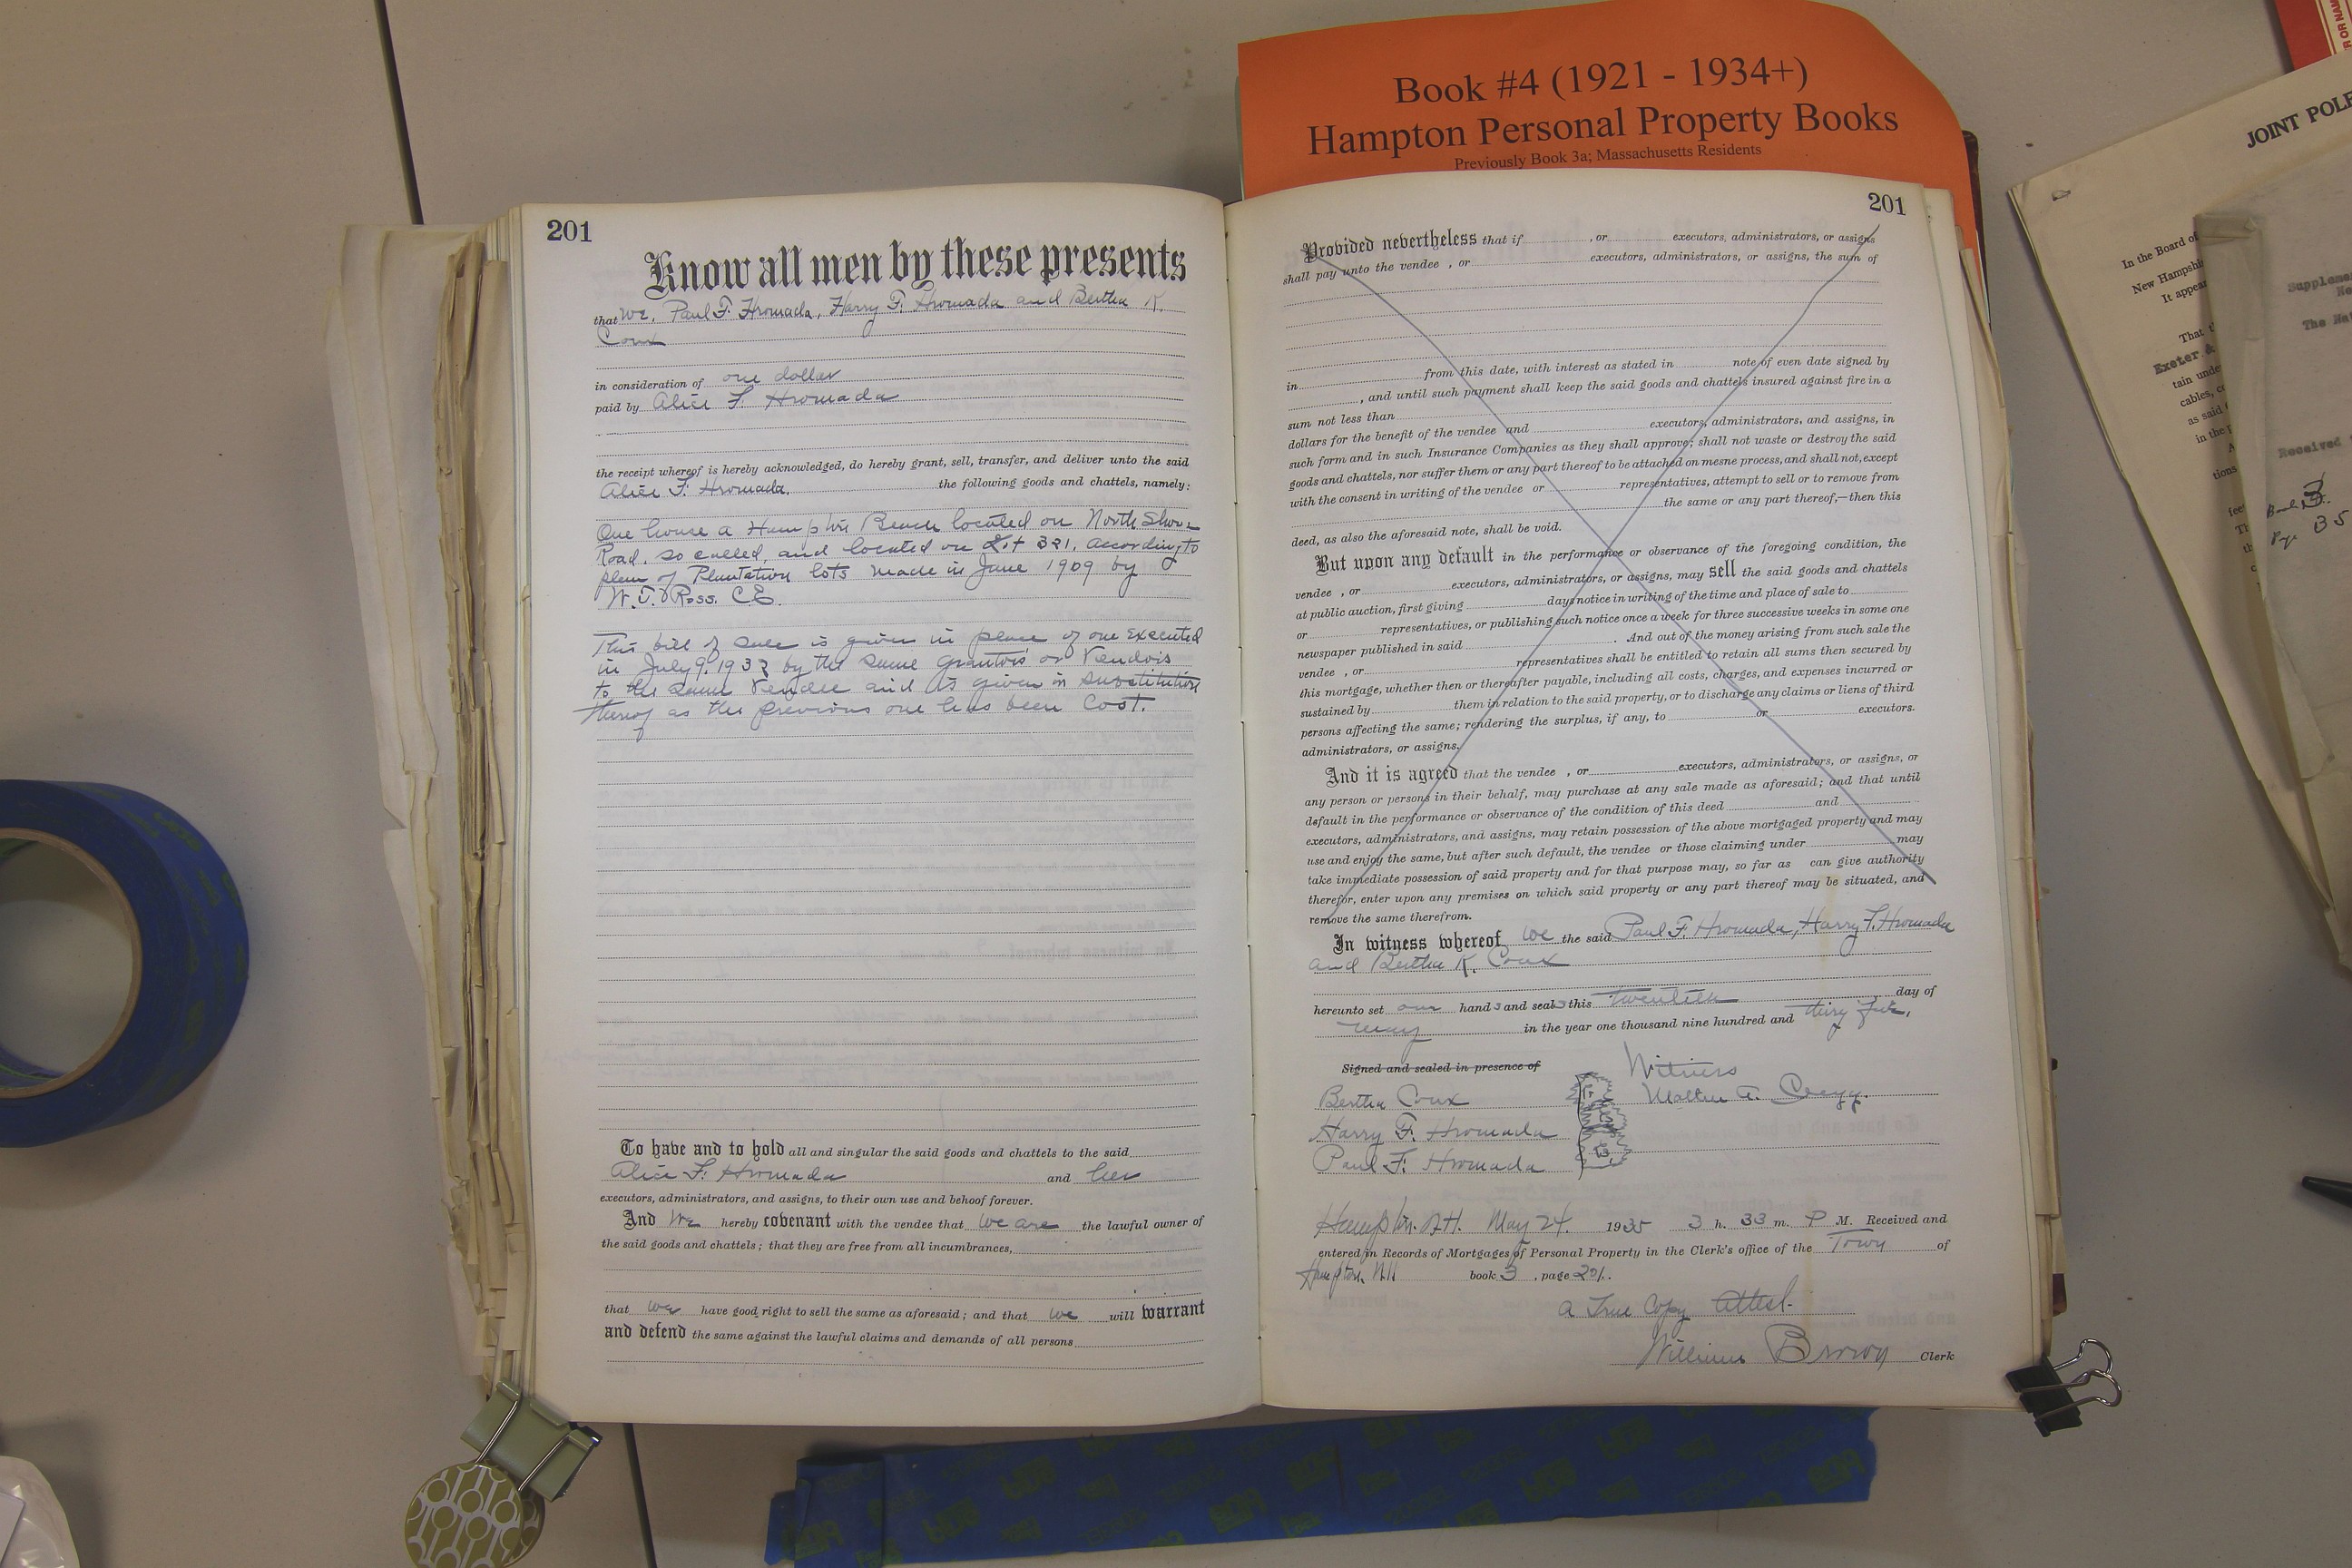 Book #4 (1921 - 1934+)
Hampton Personal Property Books
Previously Book 3a; Massachusetts Residents
201
Know all men by these presents
that We, Paul F. Hromada, Harry F. Hromada and Bertha K.
Coux
in consideration of one dollar
paid by Alice F. Hromada
the receipt whereof is hereby acknowledged, do hereby grant, sell, transfer, and deliver unto the said
Alice F. Hromada. the following goods and chattels, namely:
One house a Hampton Beach located on North Shore
Road, so called, and located on Lot 321, according to
plan of Plantation lots made in June 1909 by
W. T. Ross. C.E.
This bill of sale is given in place of one Executed
in July 9, 1932 by the same grantors or Vendors
to the same Vendee and is given in substitution
thereof as the previous one has been Lost.
To have and to hold all and singular the said goods and chattels to the said
Alice F. Hromada and her
executors, administrators, and assigns, to their own use and behoof forever.
And We hereby covenant with the vendee that we are the lawful owner of
the said goods and chattels; that they are free from all incumbrances,
that we have good right to sell the same as aforesaid; and that we will warrant
and defend the same against the lawful claims and demands of all persons
201
Provided nevertheless that if , or executors, administrators, or assigns
shall pay unto the vendee , or executors, administrators, or assigns, the sum of
in from this date, with interest as stated in note of even date signed by
, and until such payment shall keep the said goods and chattels insured against fire in a
sum not less than
dollars for the benefit of the vendee and executors, administrators, and assigns, in
such form and in such Insurance Companies as they shall approve; shall not waste or destroy the said
goods and chattels, nor suffer them or any part thereof to be attached on mesne process, and shall not, except
with the consent in writing of the vendee or representatives, attempt to sell or to remove from
the same or any part thereof,—then this
deed, as also the aforesaid note, shall be void.
But upon any default in the performance or observance of the foregoing condition, the
vendee , or executors, administrators, or assigns, may sell the said goods and chattels
at public auction, first giving days notice in writing of the time and place of sale to
or representatives, or publishing such notice once a week for three successive weeks in some one
newspaper published in said . And out of the money arising from such sale the
vendee , or representatives shall be entitled to retain all sums then secured by
this mortgage, whether then or thereafter payable, including all costs, charges, and expenses incurred or
sustained by them in relation to the said property, or to discharge any claims or liens of third
persons affecting the same; rendering the surplus, if any, to or executors.
administrators, or assigns.
And it is agreed that the vendee , or executors, administrators, or assigns, or
any person or persons in their behalf, may purchase at any sale made as aforesaid; and that until
default in the performance or observance of the condition of this deed and
executors, administrators, and assigns, may retain possession of the above mortgaged property and may
use and enjoy the same, but after such default, the vendee or those claiming under may
take immediate possession of said property and for that purpose may, so far as can give authority
therefor, enter upon any premises on which said property or any part thereof may be situated, and
remove the same therefrom.
In witness whereof we the said Paul F. Hromada, Harry F. Hromada
and Bertha K. Coux
hereunto set our hands and seals this twentieth day of
May in the year one thousand nine hundred and thiry five,
Signed and sealed in presence of
Witness
Bertha Coux
Harry F. Hromada
Paul F. Hromada
Hampton. N.H. May 24. 1935 3 h. 33 m. P M. Received and
entered in Records of Mortgages of Personal Property in the Clerk's office of the Town of
Hampton, N.H book 3 , page 201.
a True Copy Attest.
William Brown Clerk
JOINT POLE
In the Board of
New Hampshi
It appear
That t
Exeter &
tain unde
cables, co
as said
in the p
tions
Supplem
The Nat
Received
Book 3.
Page 35